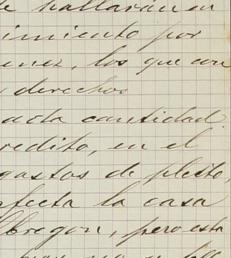 hallarán en
imiento por
enez, los que con
derechos
acta cantidad
redito, en el
gastos de pleito,
afecta la casa
Obregon, pero esta